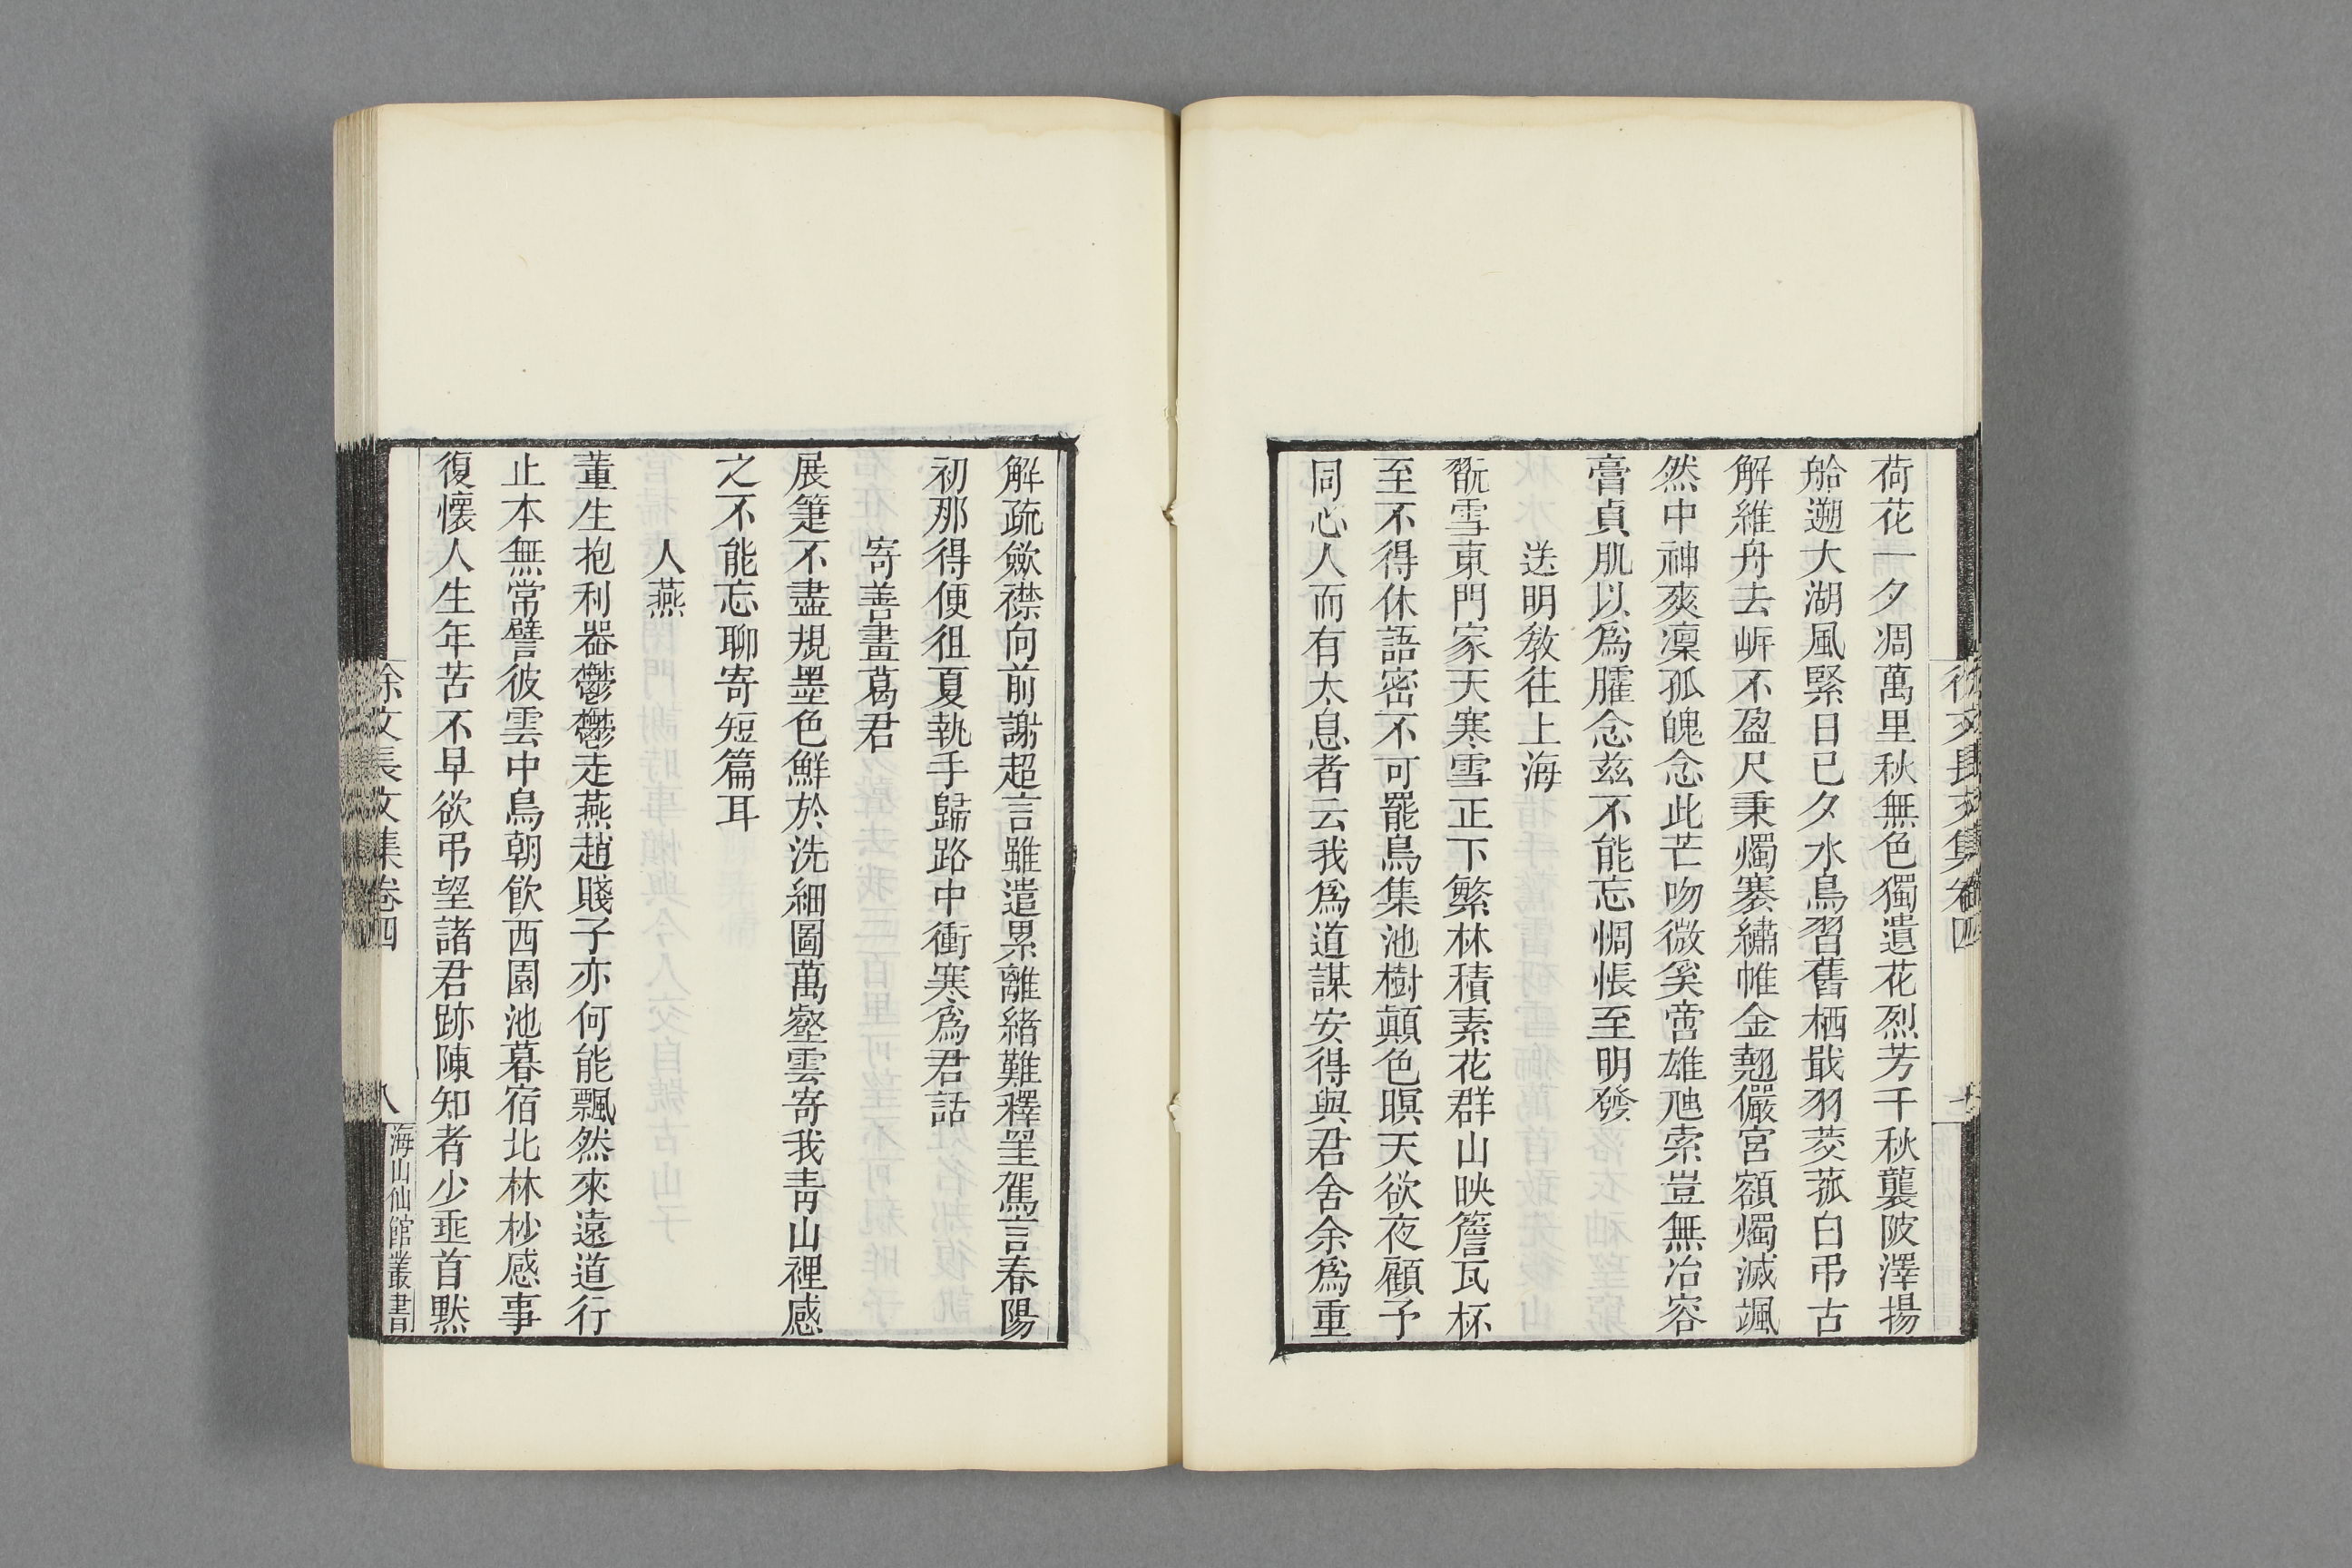 徐文長文集卷四
荷花一夕凋萬里秋無色獨遺花烈芳千秋襲陂澤揚
船遡大湖風緊日已夕水鳥習舊栖戢羽菱菰白弔古
解維舟去㟁不盈尺秉燭褰繡帷金翹儼宮額燭滅颯
然中神爽凜孤魄念此芒吻微奚啻雄虺索豈無冶容
膏貞肌以爲臛念兹不能忘惆悵至明發
送明敎往上海
翫雪東門家天寒雪正下繁林積素花群山映簷瓦杯
至不得休語密不可罷鳥集池樹顛色暝天欲夜顧予
同心人而有太息者云我爲道謀安得與君舍余爲重
解疏歛襟向前謝超言雖遣累離緒難釋罣駕言春陽
初那得便徂夏執手歸路中衝寒爲君話
寄善畫葛君
展箑不盡規墨色鮮於洗細圖萬壑雲寄我靑山裡感
之不能忘聊寄短篇耳
入燕
董生抱利器鬱鬱走燕趙賤子亦何能飄然來遠道行
止本無常譬彼雲中鳥朝飮西園池暮宿北林杪感事
復懷人生年苦不早欲弔望諸君跡陳知者少垂首黙
徐文長文集卷四
八
海山仙館叢書